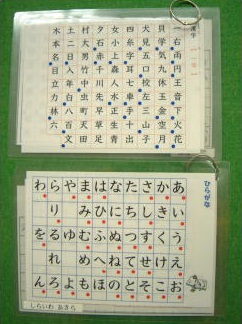 一右雨円王音下火花
貝学気九休玉金空月
犬見五口校左三山子
四糸字耳七車手十出
女小上森人水正生青
夕石赤千川先早草足
村大男竹中虫町天田
土二日入年白八百文
木本名目立力林六
ひらがな
あいうえお
かきくけこ
さしすせそ
たちつてと
なにぬねの
はひふへほ
まみむめも
やゆよ
らりるれろ
わをん
しらいわ あきら